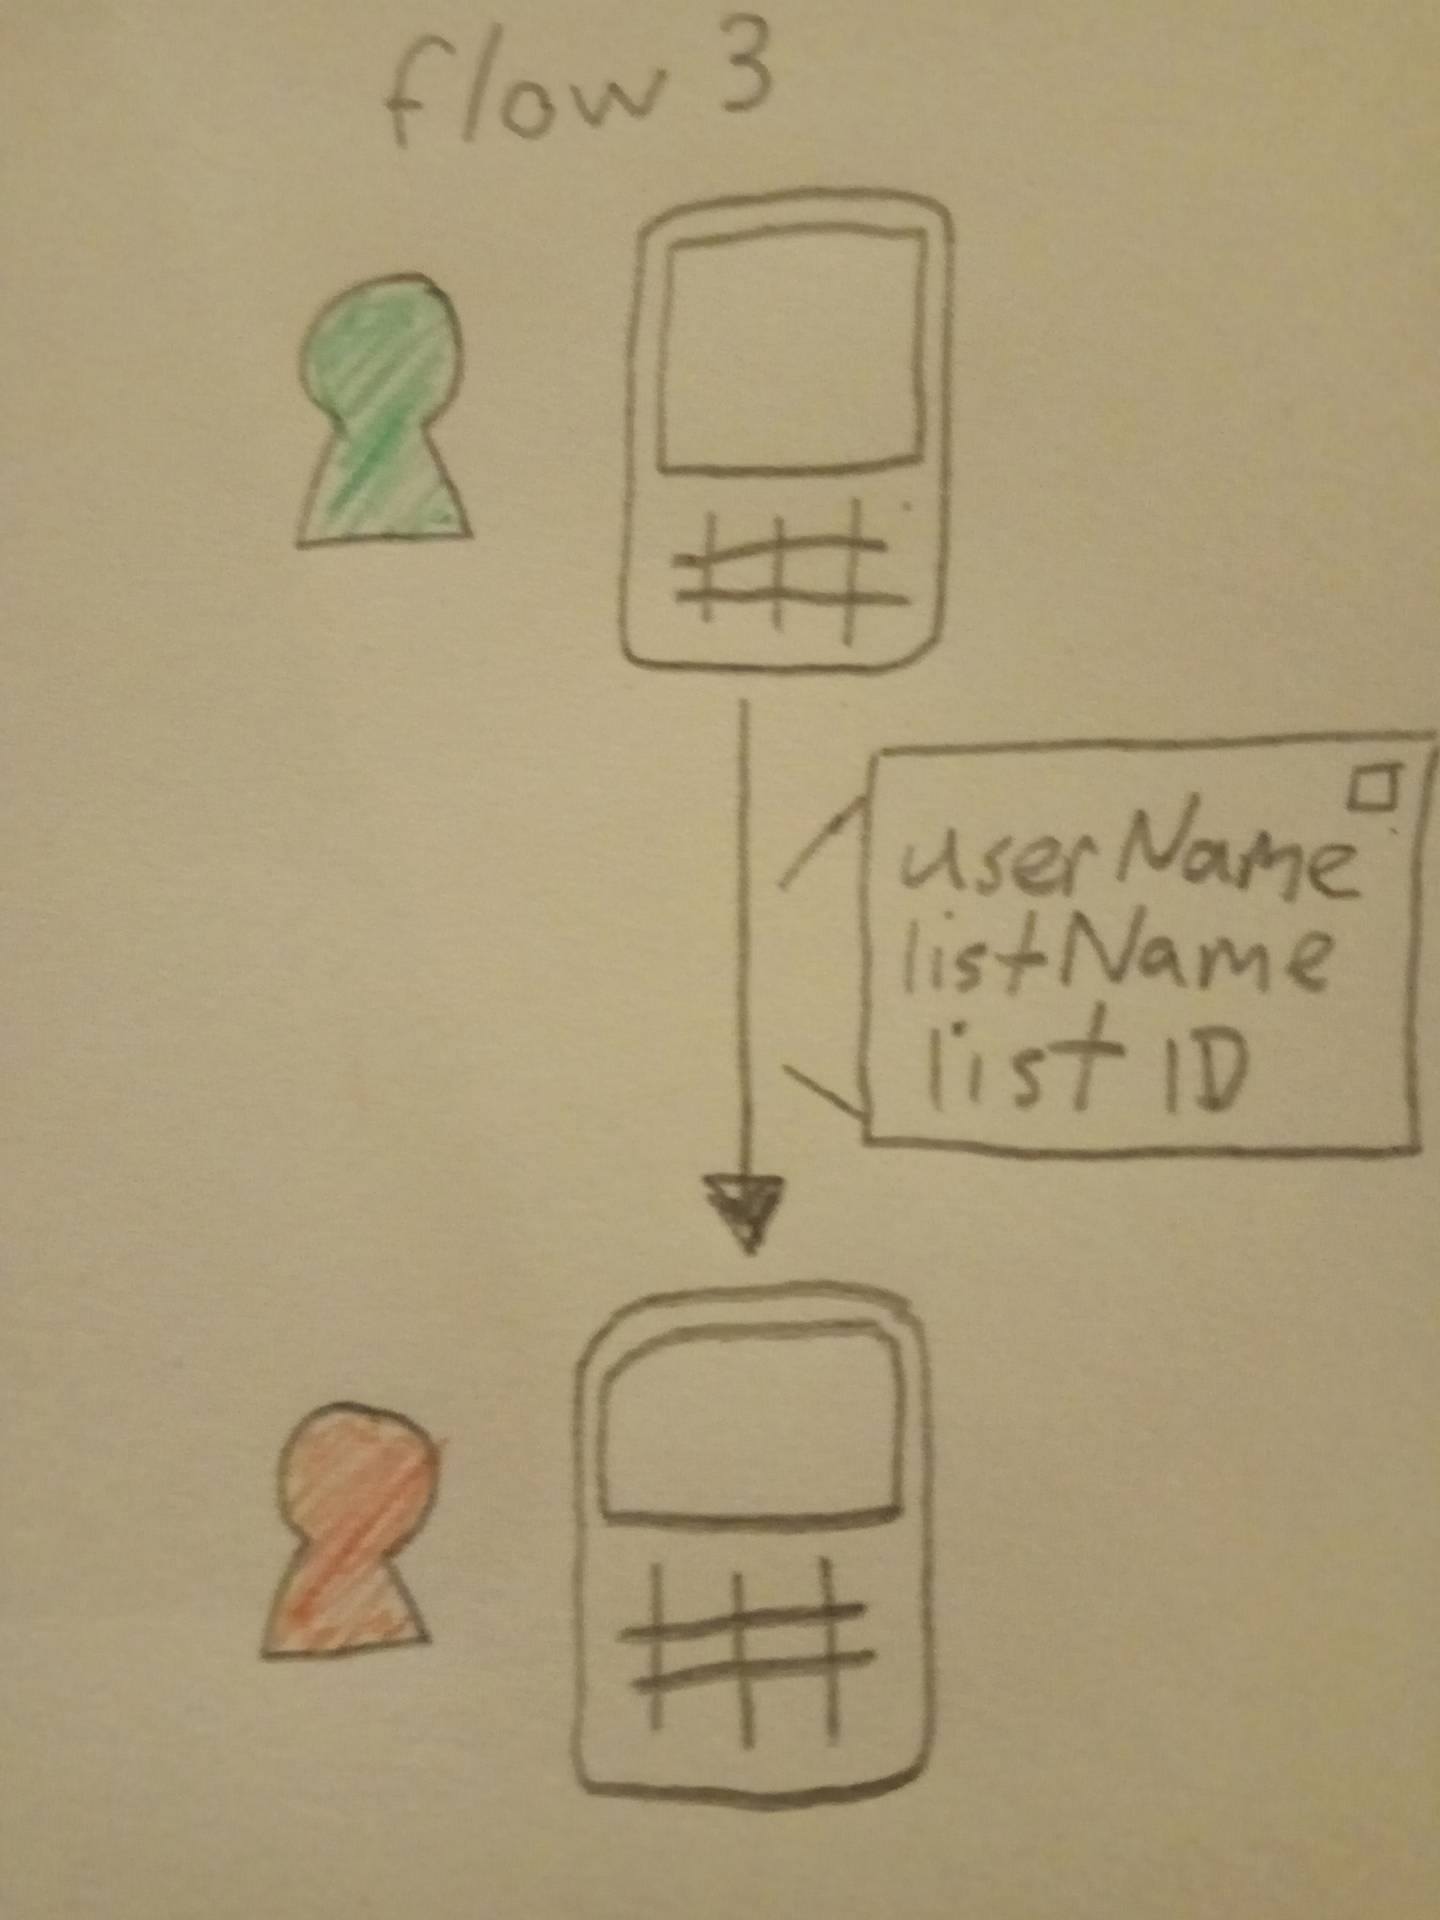 flow 3
userName
listName
list ID